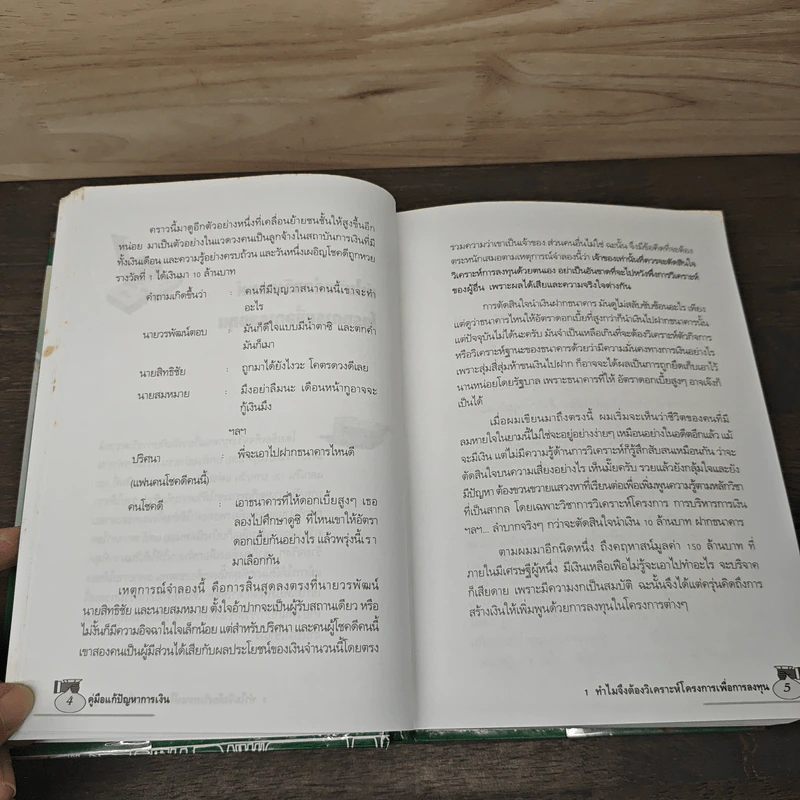 คราวนี้มาดูอีกตัวอย่างหนึ่งที่เคลื่อนย้ายชนชั้นให้สูงขึ้นอีก
หน่อย มาเป็นตัวอย่างในแวดวงคนเป็นลูกจ้างในสถาบันการเงินที่มี
ทั้งเงินเดือน และความรู้อย่างครบถ้วน และวันหนึ่งเผอิญโชคดีถูกหวย
รางวัลที่ 1 ได้เงินมา 10 ล้านบาท
คำถามเกิดขึ้นว่า : คนที่มีบุญวาสนาคนนี้เขาจะทำ
อะไร
นายวรพัฒน์ตอบ : มันก็ดีใจแบบมีน้ำตาซิ และตกดำ
มันก็เมา
นายสิทธิชัย : ถูกมาได้ยังไงวะ โคตรดวงดีเลย
นายสมหมาย : มึงอย่าลืมนะ เดือนหน้ากูอาจจะ
กู้เงินมึง
ฯลฯ
ปริศนา : พี่จะเอาไปฝากธนาคารไหนดี
(แฟนคนโชคดีคนนี้)
คนโชคดี : เอาธนาคารที่ให้ดอกเบี้ยสูงๆ เธอ
ลองไปศึกษาดูซิ ที่ไหนเขาให้อัตรา
ดอกเบี้ยกันอย่างไร แล้วพรุ่งนี้เรา
มาเลือกกัน
เหตุการณ์จำลองนี้ คือการสิ้นสุดลงตรงที่นายวรพัฒน์
นายสิทธิชัย และนายสมหมาย ตั้งใจอ้าปากจะเป็นผู้รับสถานเดียว หรือ
ไม่งั้นก็มีความอิจฉาในใจเล็กน้อย แต่สำหรับปริศนา และคนผู้โชคดีคนนี้
เขาสองคนเป็นผู้มีส่วนได้เสียกับผลประโยชน์ของเงินจำนวนนี้โดยตรง
4 คู่มือแก้ปัญหาการเงิน
รวมความว่าเขาเป็นเจ้าของ ส่วนคนอื่นไม่ใช่ ฉะนั้น จึงมีข้อคิดที่จะต้อง
ตระหนักเสมอตามเหตุการณ์จำลองนี้ว่า เจ้าของเท่านั้นที่ควรจะตัดสินใจ
วิเคราะห์การลงทุนด้วยตนเอง อย่าเป็นอันขาดที่จะไปหวังพึ่งการวิเคราะห์
ของผู้อื่น เพราะผลได้เสียและความจริงใจต่างกัน
การตัดสินใจนำเงินฝากธนาคาร มันดูไม่สลับซับซ้อนอะไร เพียง
แต่ดูว่าธนาคารไหนให้อัตราดอกเบี้ยที่สูงกว่าก็นำเงินไปฝากธนาคารนั้น
แต่ปัจจุบันไม่ได้นะครับ มันจำเป็นเหลือเกินที่จะต้องวิเคราะห์ตัวกิจการ
หรือวิเคราะห์ฐานะของธนาคารด้วยว่ามีความมั่นคงทางการเงินอย่างไร
เพราะสุ่มสี่สุ่มห้าขนเงินไปฝาก ก็อาจจะได้ผลเป็นการถูกยึดเก็บเอาไว้
นานหน่อยโดยรัฐบาล เพราะธนาคารที่ให้ อัตราดอกเบี้ยสูงๆ อาจเจ๊งก็
เป็นได้
เมื่อผมเขียนมาถึงตรงนี้ ผมเริ่มจะเห็นว่าชีวิตของคนที่มี
ลมหายใจในยามนี้ไม่ใช่จะอยู่อย่างง่ายๆ เหมือนอย่างในอดีตอีกแล้ว แม้
จะมีเงิน แต่ไม่มีความรู้ด้านการวิเคราะห์ก็รู้สึกสับสนเหมือนกัน ว่าจะ
ตัดสินใจบนความเสี่ยงอย่างไร เห็นมั๊ยครับ รวยแล้วยังกลุ้มใจและยัง
มีปัญหา ต้องขวนขวายแสวงหาที่เรียนต่อเพื่อเพิ่มพูนความรู้ตามหลักวิชา
ที่เป็นสากล โดยเฉพาะวิชาการวิเคราะห์โครงการ การบริหารการเงิน
ฯลฯ... ลำบากจริงๆ กว่าจะตัดสินใจนำเงิน 10 ล้านบาท ฝากธนาคาร
ตามผมมาอีกนิดหนึ่ง ถึงคฤหาสน์มูลค่า 150 ล้านบาท ที่
ภายในมีเศรษฐีผู้หนึ่ง มีเงินเหลือเฟือไม่รู้จะเอาไปทำอะไร จะบริจาค
ก็เสียดาย เพราะมีความงกเป็นสมบัติ ฉะนั้นจึงได้แต่ครุ่นคิดถึงการ
สร้างเงินให้เพิ่มพูนด้วยการลงทุนในโครงการต่างๆ
1 ทำไมจึงต้องวิเคราะห์โครงการเพื่อการลงทุน 5